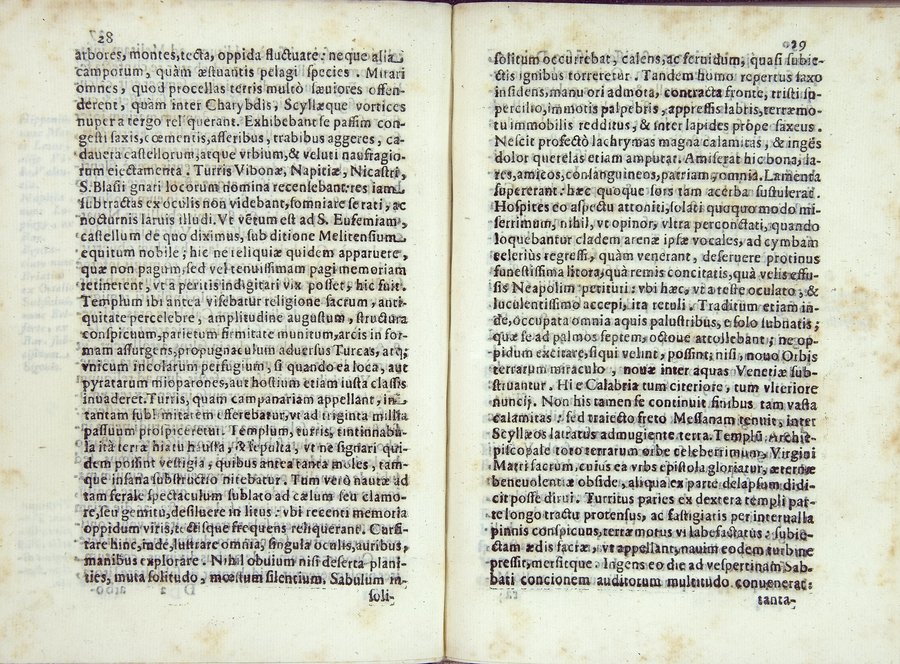 28
arbores, montes, tecta, oppida fluctuare: neque alia
camporum, quàm æstuantis pelagi species. Mirari
omnes, quod procellas terris multò sæuiores offen-
derent, quàm inter Charybdis, Scyllæque vortices
nuper a tergo reliquerant. Exhibebant se passim con-
gesti saxis, cœmentis, asseribus, trabibus aggeres, ca-
dauera castellorum, atque vrbium, & veluti naufragio-
rum eiectamenta. Turris Vibonæ, Napitiæ, Nicastri,
S. Blasij gnari locorum nomina recensebant: res iam
subtractas ex oculis non videbant, somniare se rati, ac
nocturnis laruis illudi. Vt ventum est ad S. Eufemiam,
castellum de quo diximus, sub ditione Melitensium
equitum nobile, hic ne reliquiæ quidem apparuere,
quæ non pagum, sed vel tenuissimam pagi memoriam
retinerent, vt a peritis indigitari vix posset, hic fuit.
Templum ibi antea visebatur religione sacrum, anti-
quitate percelebre, amplitudine augustum, structura
conspicuum, parietum firmitate munitum, arcis in for-
mam assurgens, propugnaculum aduersus Turcas, atq;
vnicum incolarum perfugium, si quando ea loca, aut
pyratarum mioparones, aut hostium etiam iusta classis
inuaderet. Turris, quam campanariam appellant, in
tantam sublimitatem efferebatur, vt ad triginta millia
passuum prospiceret. Templum, turris, tintinnabu-
la ità terræ hiatu hausta, & sepulta, vt ne signari qui-
dem possint vestigia, quibus antea tanta moles, tam-
que insana substructio nitebatur. Tum verò nautæ ad
tam ferale spectaculum sublato ad cælum seu clamo-
re, seu gemitu, desiluere in litus: vbi recenti memoria
oppidum viris, tectisque frequens reliquerant. Cursi-
tare hinc, inde, lustrare omnia, singula oculis, auribus,
manibus explorare. Nihil obuium nisi deserta plani-
ties, muta solitudo, mœstum silentium. Sabulum in-
soli-
29
solitum occurrebat, calens, ac feruidum, quasi subie-
ctis ignibus torreretur. Tandem homo repertus saxo
insidens, manu ori admota, contracta fronte, tristi su-
percilio, immotis palpebris, appressis labris, terræmo-
tu immobilis redditus, & inter lapides prope saxeus.
Nescit profectò lachrymas magna calamitas, & ingēs
dolor querelas etiam amputat. Amiserat hic bona, la-
res, amicos, consanguineos, patriam, omnia. Lamenta
supererant: hæc quoque sors tam acerba sustulerat.
Hospites eo aspectu attoniti, solati quoquo modo mi-
serrimum, nihil, vt opinor, vltra percontati, quando
loquebantur cladem arenæ ipsæ vocales, ad cymbam
celerius regressi, quàm venerant, deseruere protinus
funestissima litora, quà remis concitatis, quà velis effu-
sis Neapolim petituri: vbi hæc, vt a teste oculato, &
luculentissimo accepi, ita retuli. Traditum etiam in-
de, occupata omnia aquis palustribus, e solo subnatis;
quæ se ad palmos septem, octoue attollebant; ne op-
pidum excitare, si qui velint, possint; nisi, nouo Orbis
terrarum miraculo, nouæ inter aquas Venetiæ sub-
struantur. Hi e Calabria tum citeriore, tum vlteriore
nuncij. Non his tamen se continuit finibus tam vasta
calamitas: sed traiecto freto Messanam tenuit, inter
Scyllæos latratus admugiente terra. Templū Archie-
piscopale toto terrarum orbe celeberrimum, Virgini
Matri sacrum, cuius ea vrbs epistola gloriatur, æternæ
beneuolentiæ obside, aliqua ex parte delapsum didi-
cit posse dirui. Turritus paries ex dextera templi par-
te longo tractu protensus, ac fastigiatis per interualla
pinnis conspicuus, terræ motus vi labefactatus: subie-
ctam ædis sacræ, vt appellant, nauim eodem turbine
pressit, mersitque. Ingens eo die ad vespertinam Sab-
bati concionem auditorum multitudo conuenerat:
tanta